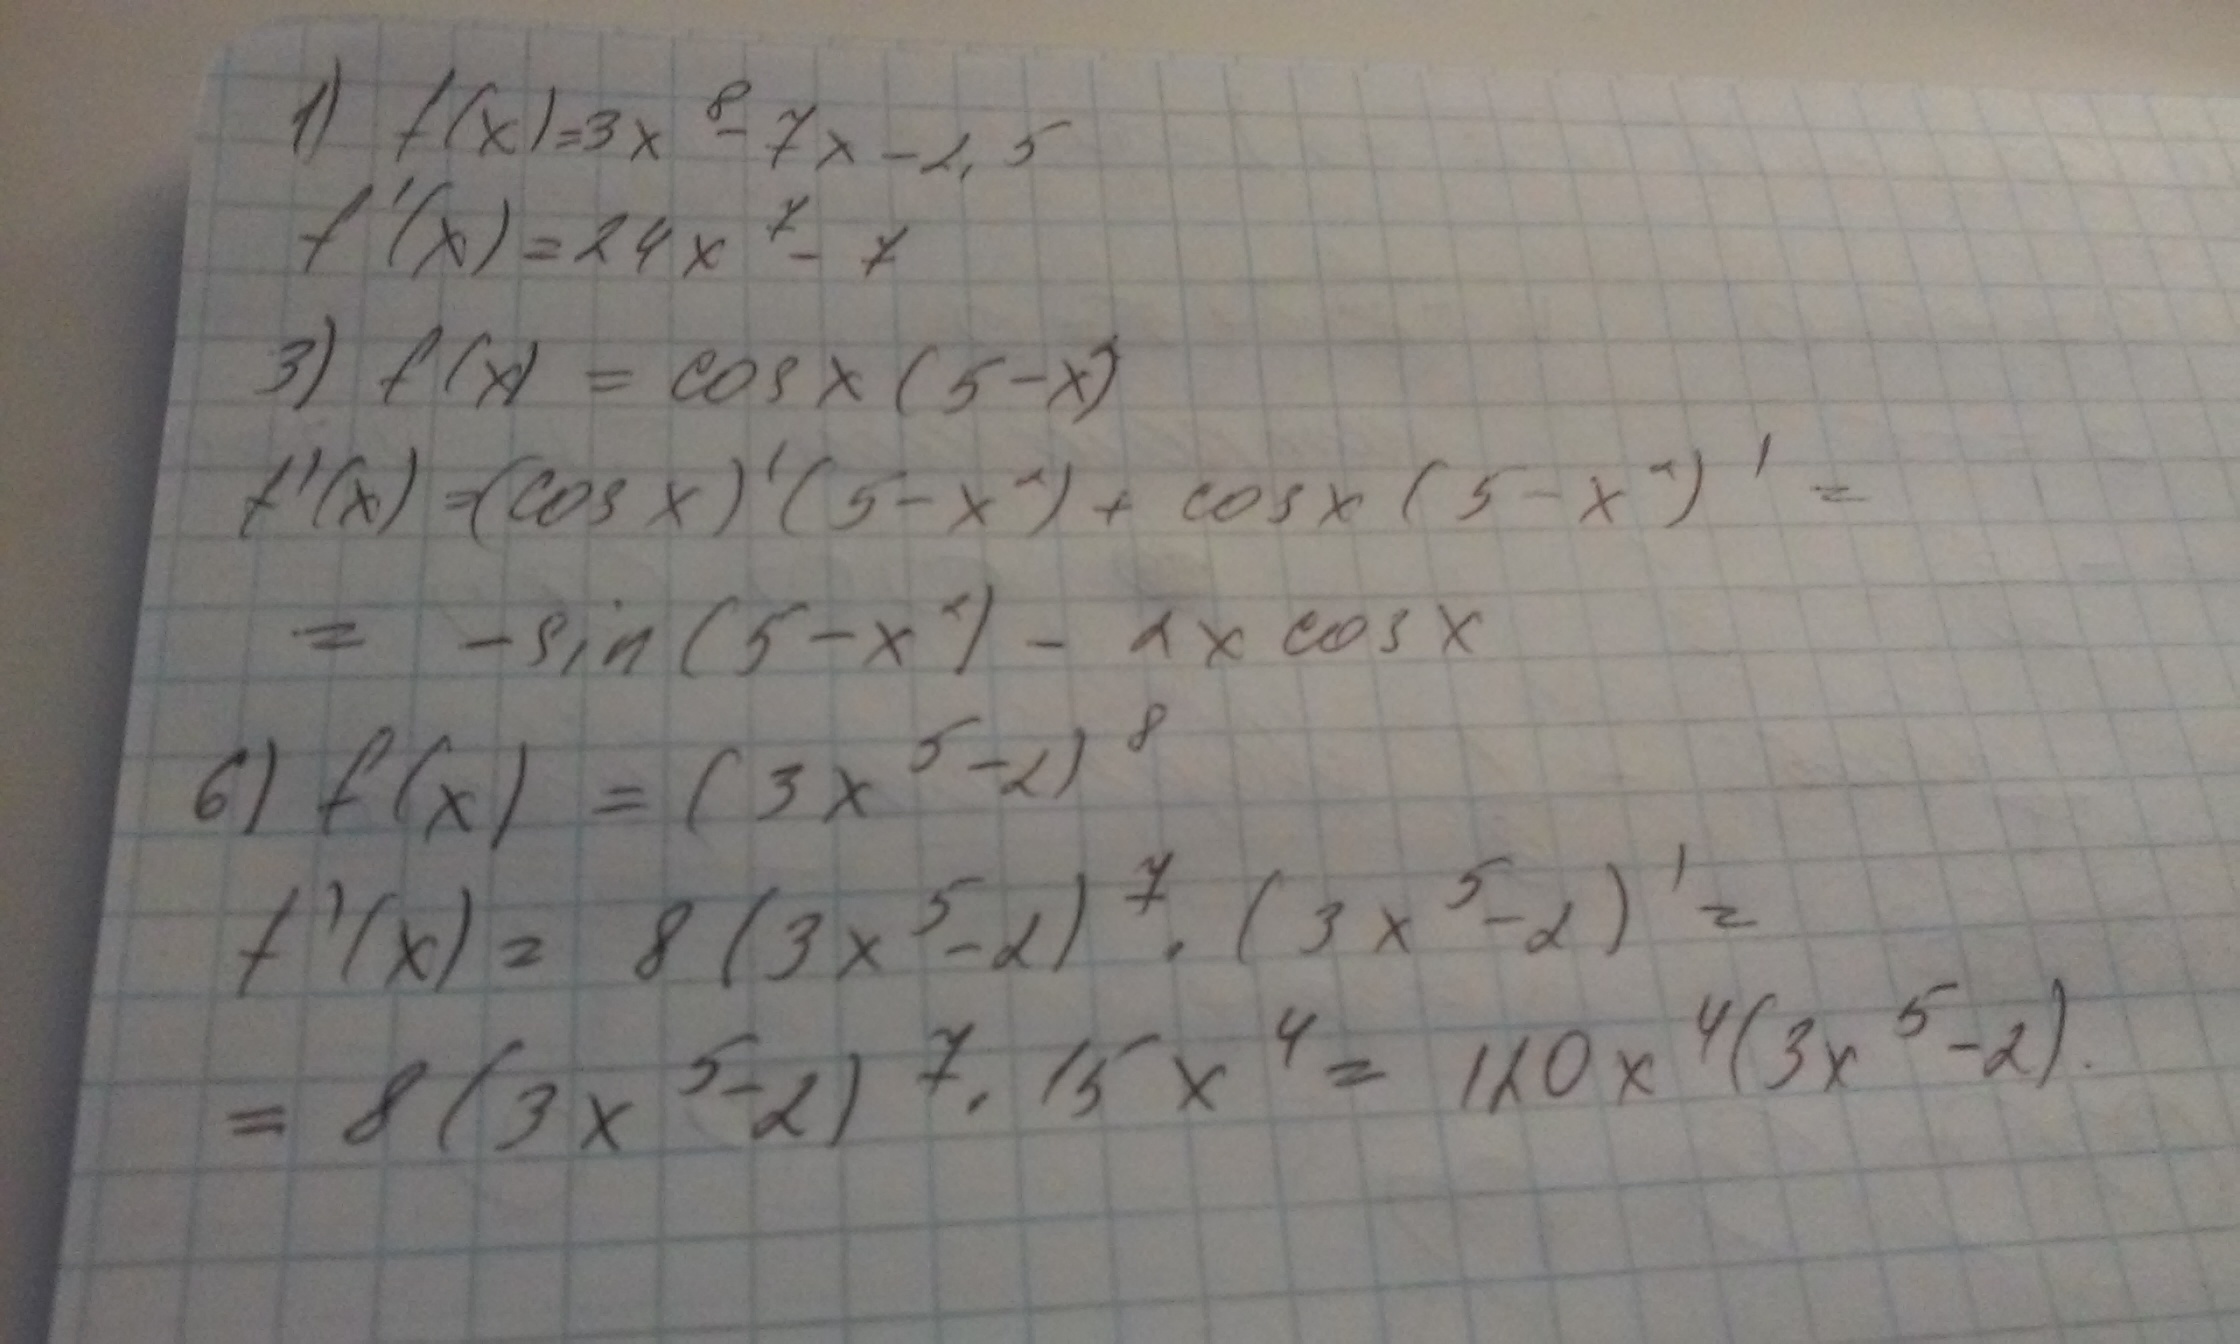 1) f(x)=3x⁸-7x-2,5
f'(x)=24x⁷-7
3) f(x) = cosx(5-x²)
f'(x)=(cosx)'(5-x²)+cosx(5-x²)'=
= -sin(5-x²)-2xcosx
6) f(x) = (3x⁵-2)⁸
f'(x)= 8(3x⁵-2)⁷·(3x⁵-2)'=
= 8(3x⁵-2)⁷·15x⁴= 120x⁴(3x⁵-2).